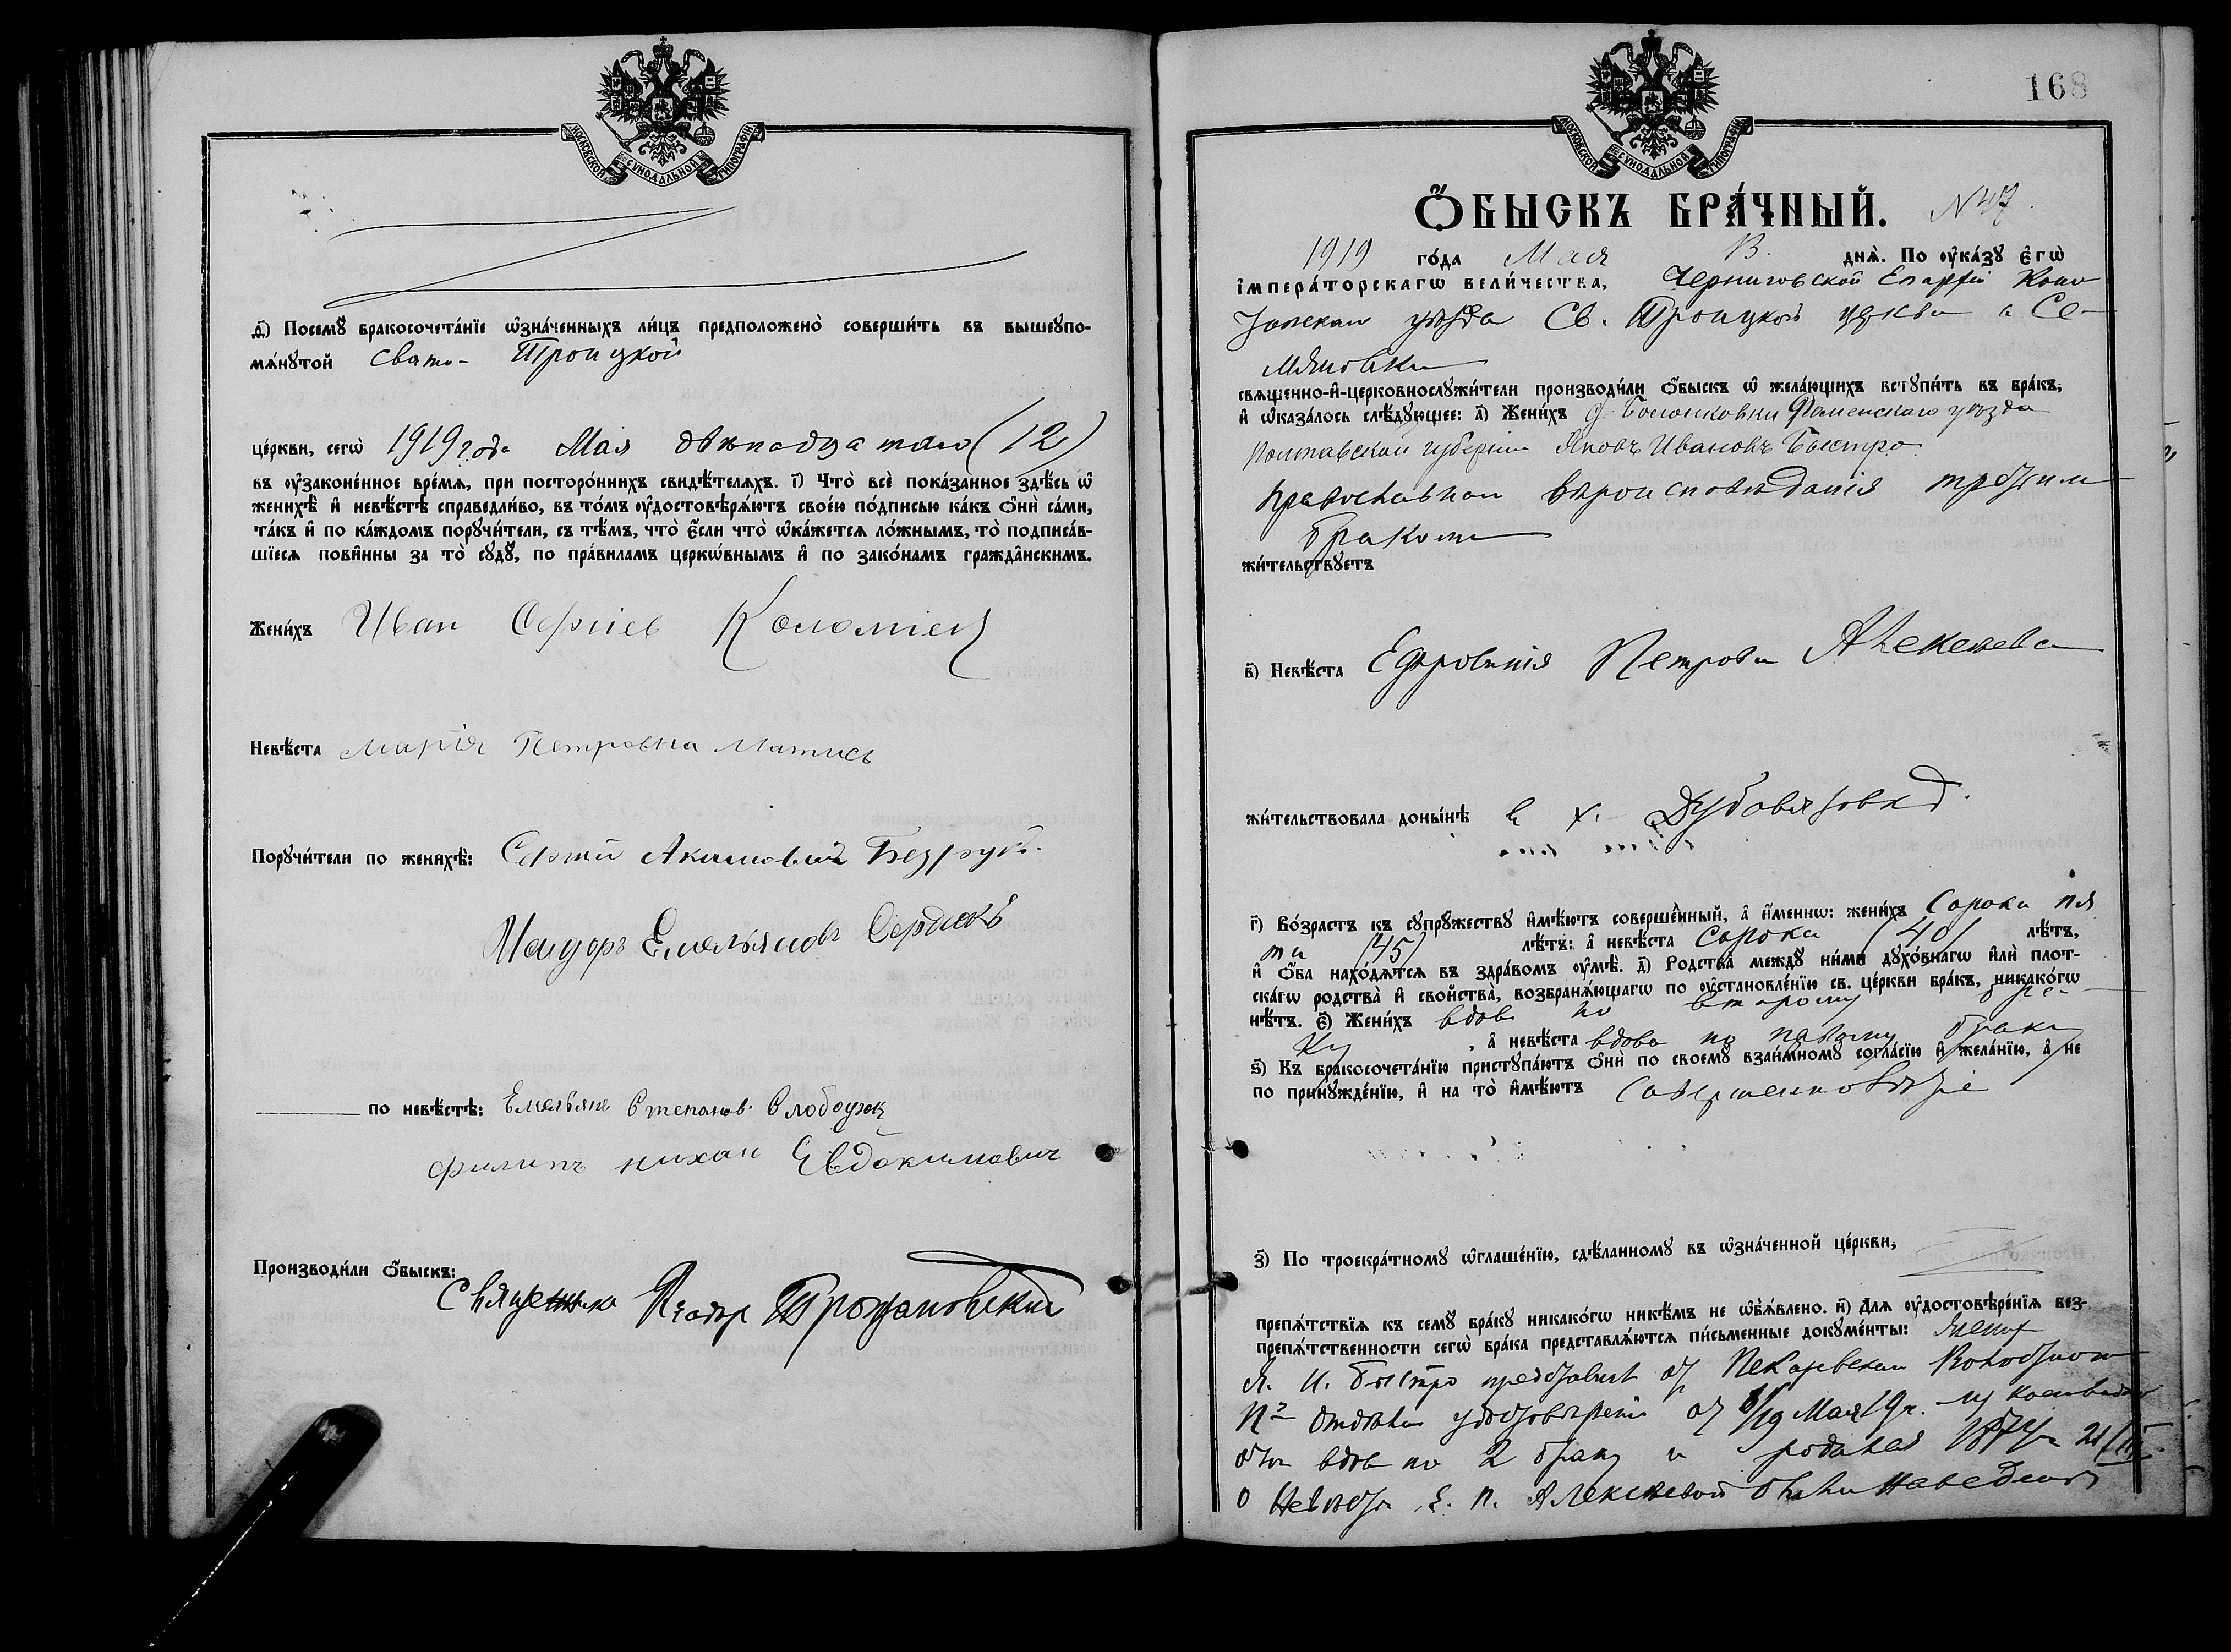 МОСКОВСКОЙ СѴНОДАЛЬНОЙ ТИПОГРАФІИ
д҃) Посемꙋ̀ бракосочета́нїе ѡ҆зна́ченныхъ ли́цъ предположено̀ соверши́ть въ вышеꙋпо-
мѧ́нꙋтой Свято- Троицкой
це́ркви, сегѡ̀ 1919 года Мая двенадцатаго (12)
въ оу҆законе́нное вре́мѧ, при посторо́ннихъ свидѣ́телѧхъ. і҃) Что̀ всѐ пока́занное здѣ́сь ѡ҆
женихѣ̀ и҆ невѣ́стѣ справедли́во, въ то́мъ оу҆достовѣрѧ́ютъ свое́ю по́дписью ка́къ ѻ҆нѝ са́ми,
та́къ и҆ по ка́ждомъ порꙋчи́тели, съ тѣ́мъ, что̀ є҆́сли что̀ ѡ҆ка́жетсѧ ло́жнымъ, то̀ подписа́в-
шїесѧ пови́нны за то̀ сꙋдꙋ̀, по пра́виламъ церкѡ́внымъ и҆ по зако́намъ гражда̂нскимъ.
Жени́хъ Иван Сергіев Коломіец
Невѣ́ста Марія Петровна Матись
Порꙋчи́тели по женихѣ̀: Сергій Акимовичъ Безрукъ.
Емельяновъ Сердюкъ
по невѣ́стѣ: Емельянъ Степановъ Слободчук
Филипъ Евдокимович
Производи́ли ѻ҆́быскъ:
Священникъ Троцановский
168
МОСКОВСКОЙ СѴНОДАЛЬНОЙ ТИПОГРАФІИ
Ѻ҆́БЫСКЪ БРА́ЧНЫЙ. N 47.
1919 го́да Мая В. днѧ̀. По оу҆ка́зꙋ є҆гѡ̀
і҆мпера́торскагѡ вели́чества, Черниговской Епархіи Коно
топскаго уѣзда Св. Троицкой церкви с Се-
мяновки
свѧще́нно-и҆-церковнослꙋжи́тели производи́ли ѻ҆́быскъ ѡ҆ жела́ющихъ встꙋпи́ть въ бра́къ;
и҆ ѡ҆каза́лось слѣ́дꙋющее: а҃) Жени́хъ уѣзда
Полтавской губерніи Яковъ Ивановъ Быстро
православнаго вѣроисповѣданія третим
браком
жи́тельствꙋетъ
в҃) Невѣ́ста Ефросинія Петрова Алексеева
жи́тельствовала доны́нѣ в х. Дубовязовкѣ.
г҃) Во́зрастъ къ сꙋпрꙋ́жествꙋ и҆мѣ́ютъ соверше́нный, а҆ и҆́меннѡ: жени́хъ Сорока пя
ти (45) лѣ́тъ: а҆ невѣ́ста сорока (40) лѣ́тъ,
и҆ ѻ҆́ба нахо́дѧтсѧ въ здра́вомъ оу҆мѣ̀. д҃) Родства̀ междꙋ̀ ни́ми дꙋхо́внагѡ и҆лѝ плот-
ска́гѡ родства̀ и҆ свойства̀, возбранѧ́ющагѡ по оу҆становле́нїю св. це́ркви бра́къ, никако́гѡ
нѣ́тъ. є҃) Жени́хъ вдов по второму бра-
ку, а҆ невѣ́ста вдова по браку
ѕ҃) Къ бракосочета́нїю пристꙋпа́ютъ ѻ҆нѝ по своемꙋ̀ взаи́мномꙋ согла́сїю и҆ жела́нїю, а҆ не
по принꙋжде́нїю, и҆ на то̀ и҆мѣ́ютъ совершеннолѣтіе
з҃) По троекра́тномꙋ ѡ҆глаше́нїю, сдѣ́ланномꙋ въ ѡ҆зна́ченной це́ркви,
препѧ́тствїѧ къ семꙋ̀ бра́кꙋ никако́гѡ никѣ́мъ не ѡ҆б̾ѧ́влено. и҃) Длѧ оу҆достовѣре́нїѧ без-
препѧ́тственности сегѡ̀ бра́ка представлѧ́ютсѧ пи́сьменные докꙋме́нты: Жених
Я. И. Быстро представил от
от 8/19 Мая 19 г. из
вдов по 2 браку и
о Невѣстѣ Е. П. Алексѣевой были наведены